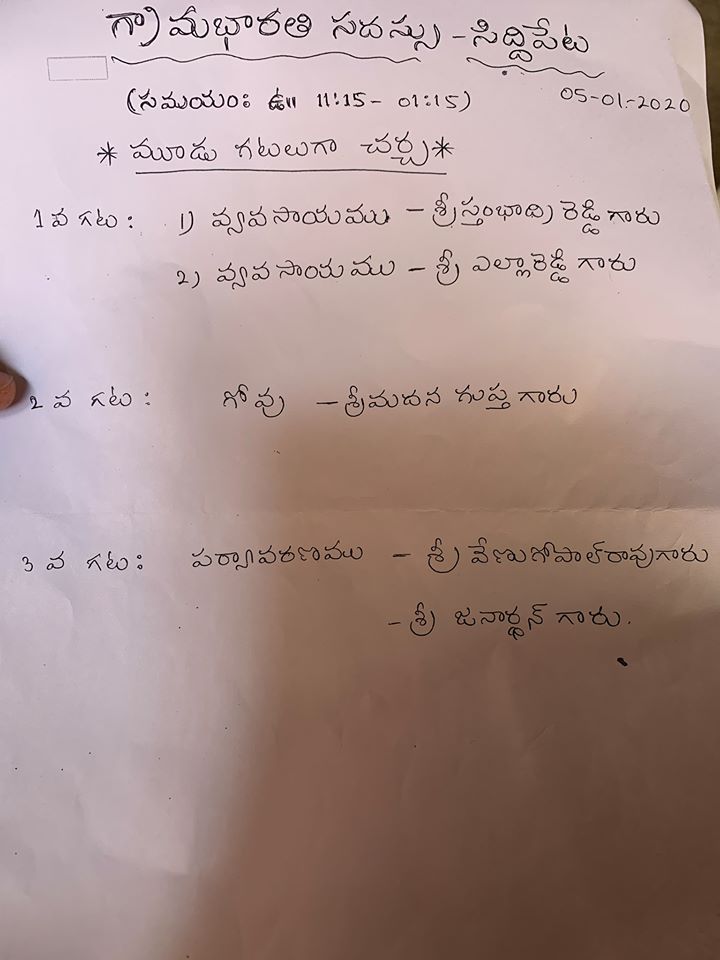 గ్రామభారతి సదస్సు - సిద్దిపేట
(సమయం: ఉ॥ 11:15 - 01:15) 05-01-2020
* మూడు గటలుగా చర్చ *
1 వ గట : 1) వ్యవసాయము - శ్రీస్తంభాద్రి రెడ్డి గారు
2) వ్యవసాయము - శ్రీ ఎల్లారెడ్డి గారు
2 వ గట : గోవు - శ్రీమదన గుప్త గారు
3 వ గట : పర్యావరణము - శ్రీ వేణుగోపాల్‌రావుగారు
- శ్రీ జనార్ధన్ గారు.